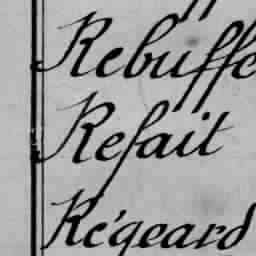 Rebuffe
Refait
Régeard